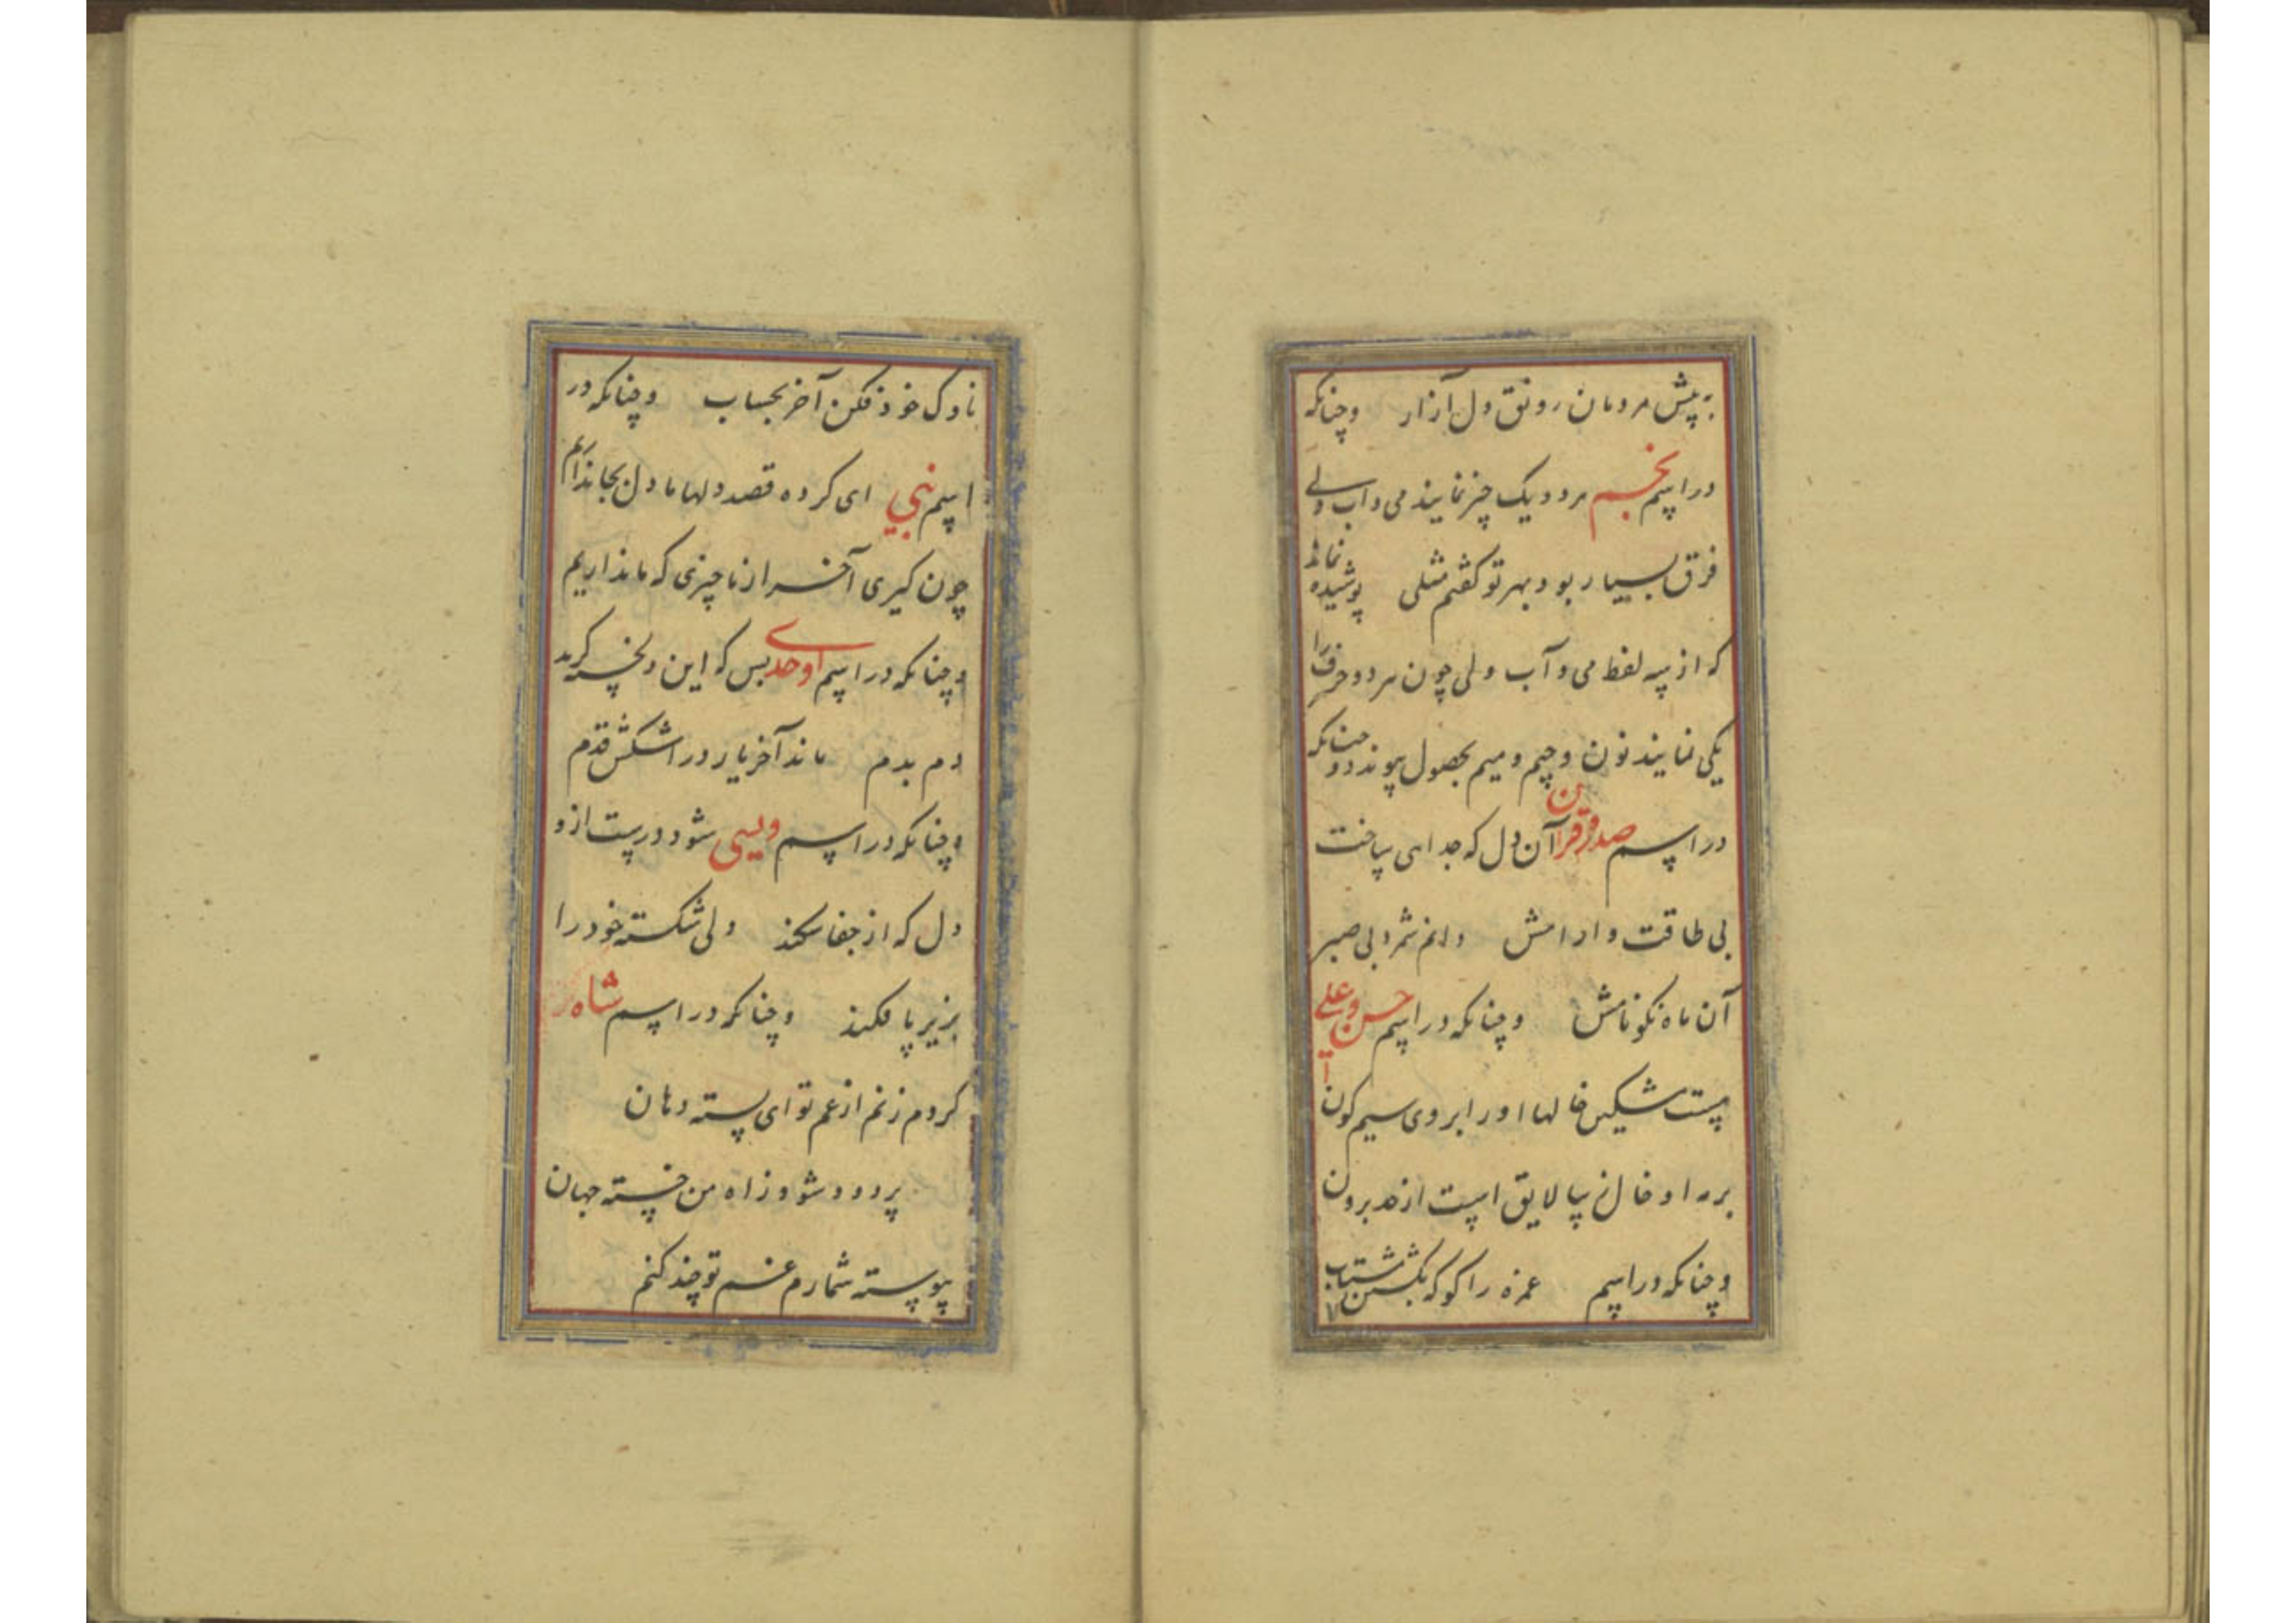 به پیش مردمان رونق دل آزار وچنانکه
در اسم نجم هر دو یک چیز نمایند می و آب ولی
فرق بسیار بود بهر تو گفتم مثلی پوشیده نماند
که از سه لفظ می و آب ولی چون هر دو حرف را
یکی نمایند نون و جیم و میم بحصول پیوندد و چنانکه
در اسم صدر قرآن دل که جدایی ساخت
بی طاقت و آرامش دانم شمرد بی صبر
آن ماه نکو نامش وچنانکه در اسم حسن وعلی
هست مشکین خالها او را بروی سیم کون
بر مه او خال زیبا لایق است از حد برون
وچنانکه در اسم غمزه را کو که بکش شتاب
ناوک خود فکن آخر بحساب وچنانکه در
اسم نبی ای کرده قصد دلها ما دل بجا نداریم
چون گیری آخر از ما چیزی که ما نداریم
وچنانکه در اسم اوحدی بس که این دلخسته گرید
دم بدم ماند آخر یار در اشکش قدم
وچنانکه در اسم ویسی شود درست از و
دل که از جفا شکند ولی شکسته خود را
بزیر پا فکند وچنانکه در اسم شاه
کردم زنم از غم تو ای پسته دهان
پر دود شود ز آه من خسته جهان
پیوسته شمارم غم تو چند کنم